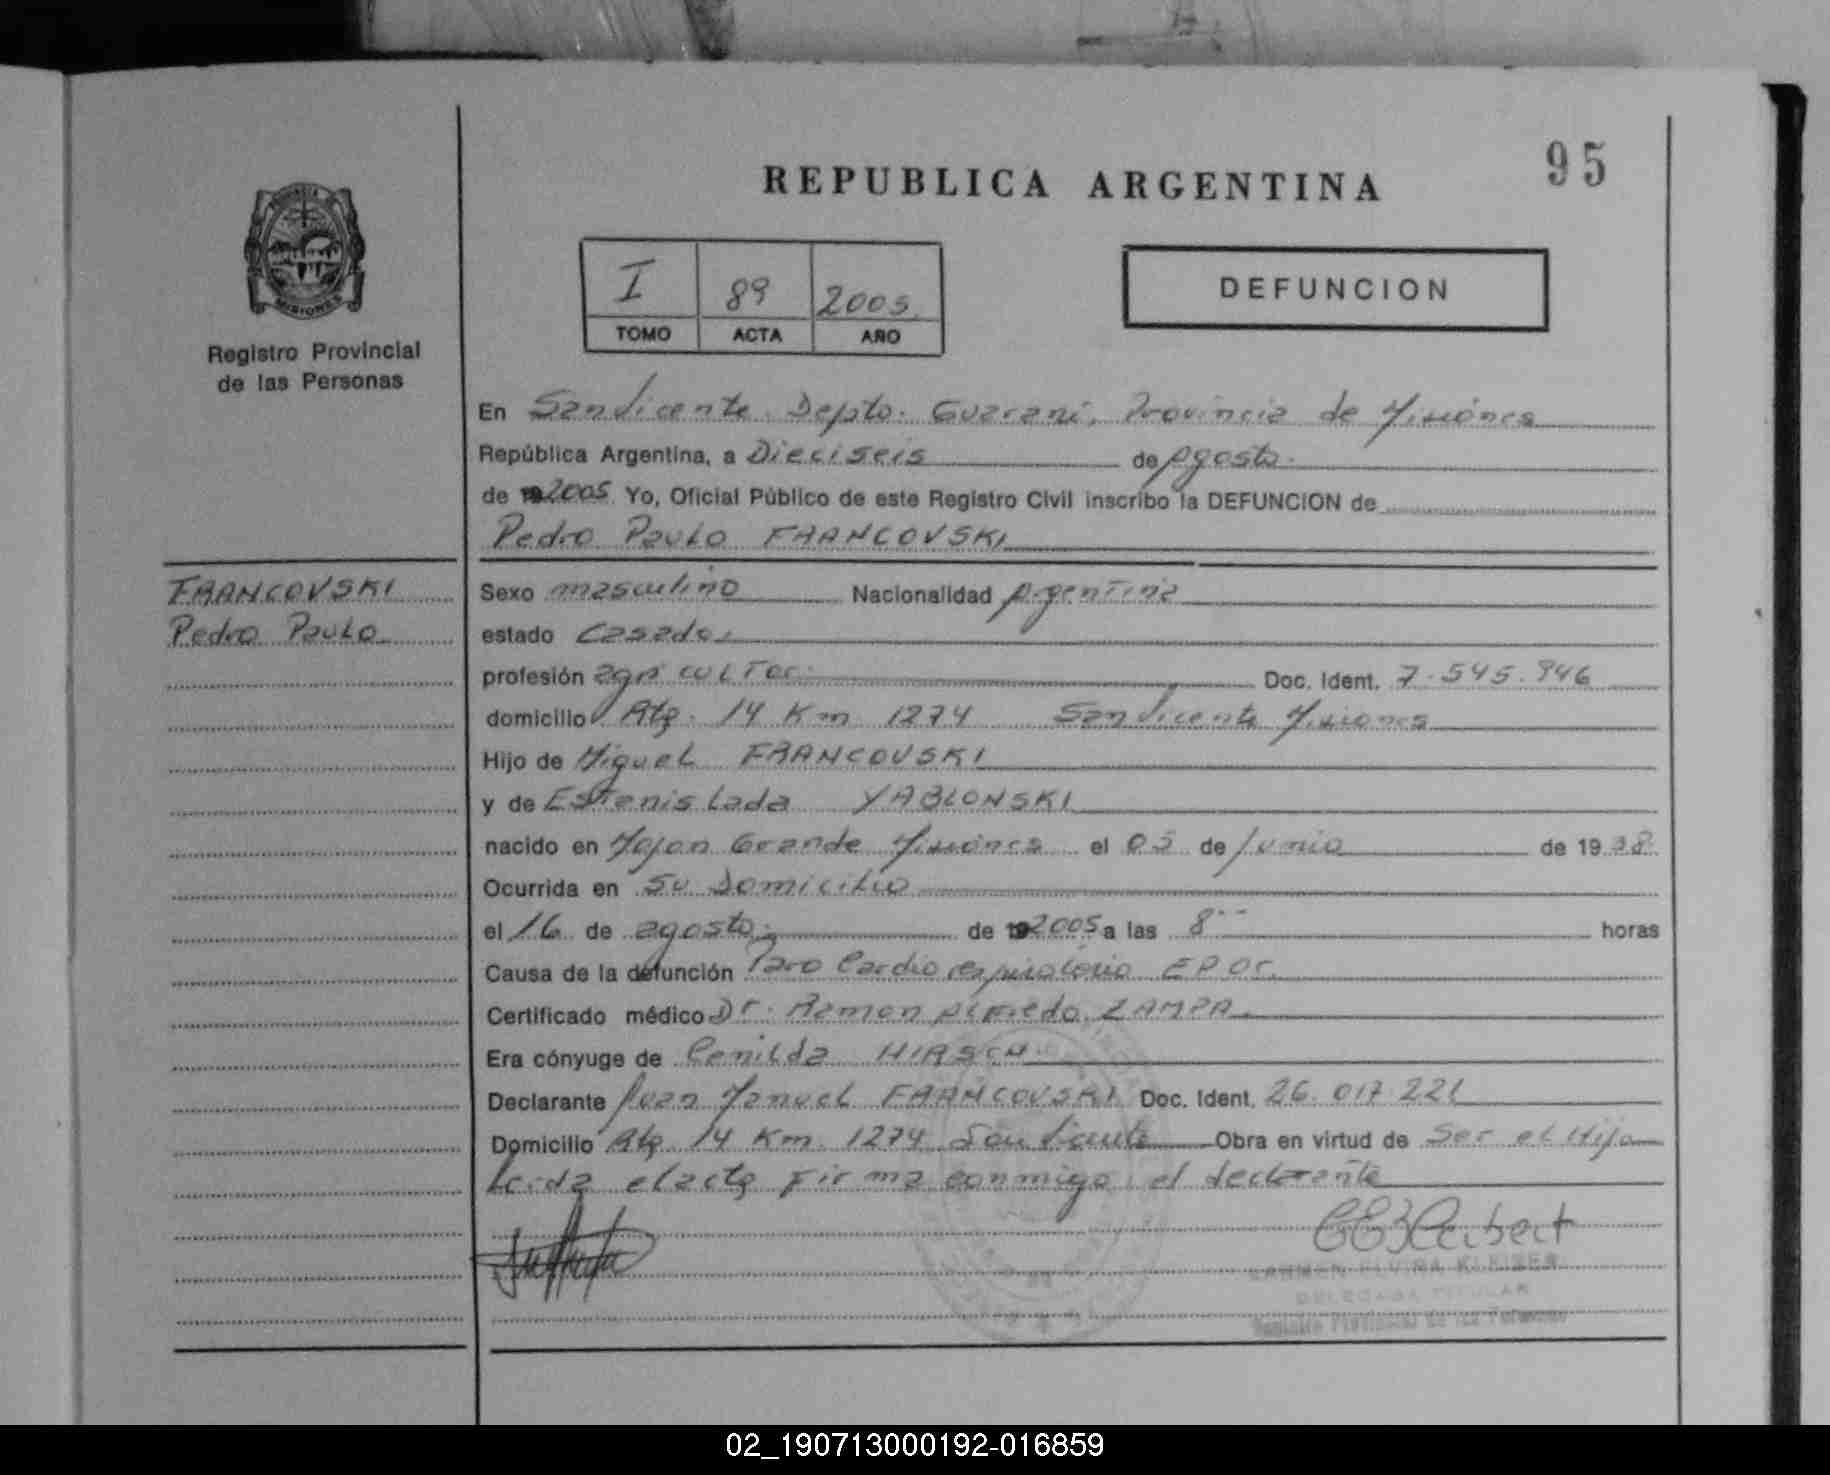 95
REPUBLICA ARGENTINA
I 89 2005
TOMO ACTA AÑO
DEFUNCION
MISIONES
Registro Provincial
de las Personas
En San Vicente Depto. Guarani, Provincia de Misiones
República Argentina, a Dieciseis de Agosto
de 2005. Yo, Oficial Público de este Registro Civil inscribo la DEFUNCION de
Pedro Paulo FRANCOVSKI
FRANCOVSKI
Pedro Paulo
Sexo masculino Nacionalidad Argentina
estado Casado
profesión agricultor Doc. Ident. 7.545.946
domicilio Rta. 14 Km 1274 San Vicente Misiones
Hijo de Miguel FRANCOVSKI
y de Estanislada YABLONSKI
nacido en Mojon Grande Misiones el 05 de Junio de 1938
Ocurrida en Su Domicilio
el 16 de agosto de 2005 a las 8 horas
Causa de la defunción Paro Cardio respiratorio EPOC.
Certificado médico Dr. Ramon Alfredo ZAMPA.
Era cónyuge de Cenilda HIRSCH
Declarante Juan Manuel FRANCOVSKI Doc. Ident. 26.017.221
Domicilio Rta 14 Km. 1274 San Vicente Obra en virtud de Ser el Hijo
Leida el acta Firma conmigo el declarante
CARMEN ELVIRA
DELEGADA TITULAR
Registro Provincial de las Personas
02_190713000192-016859